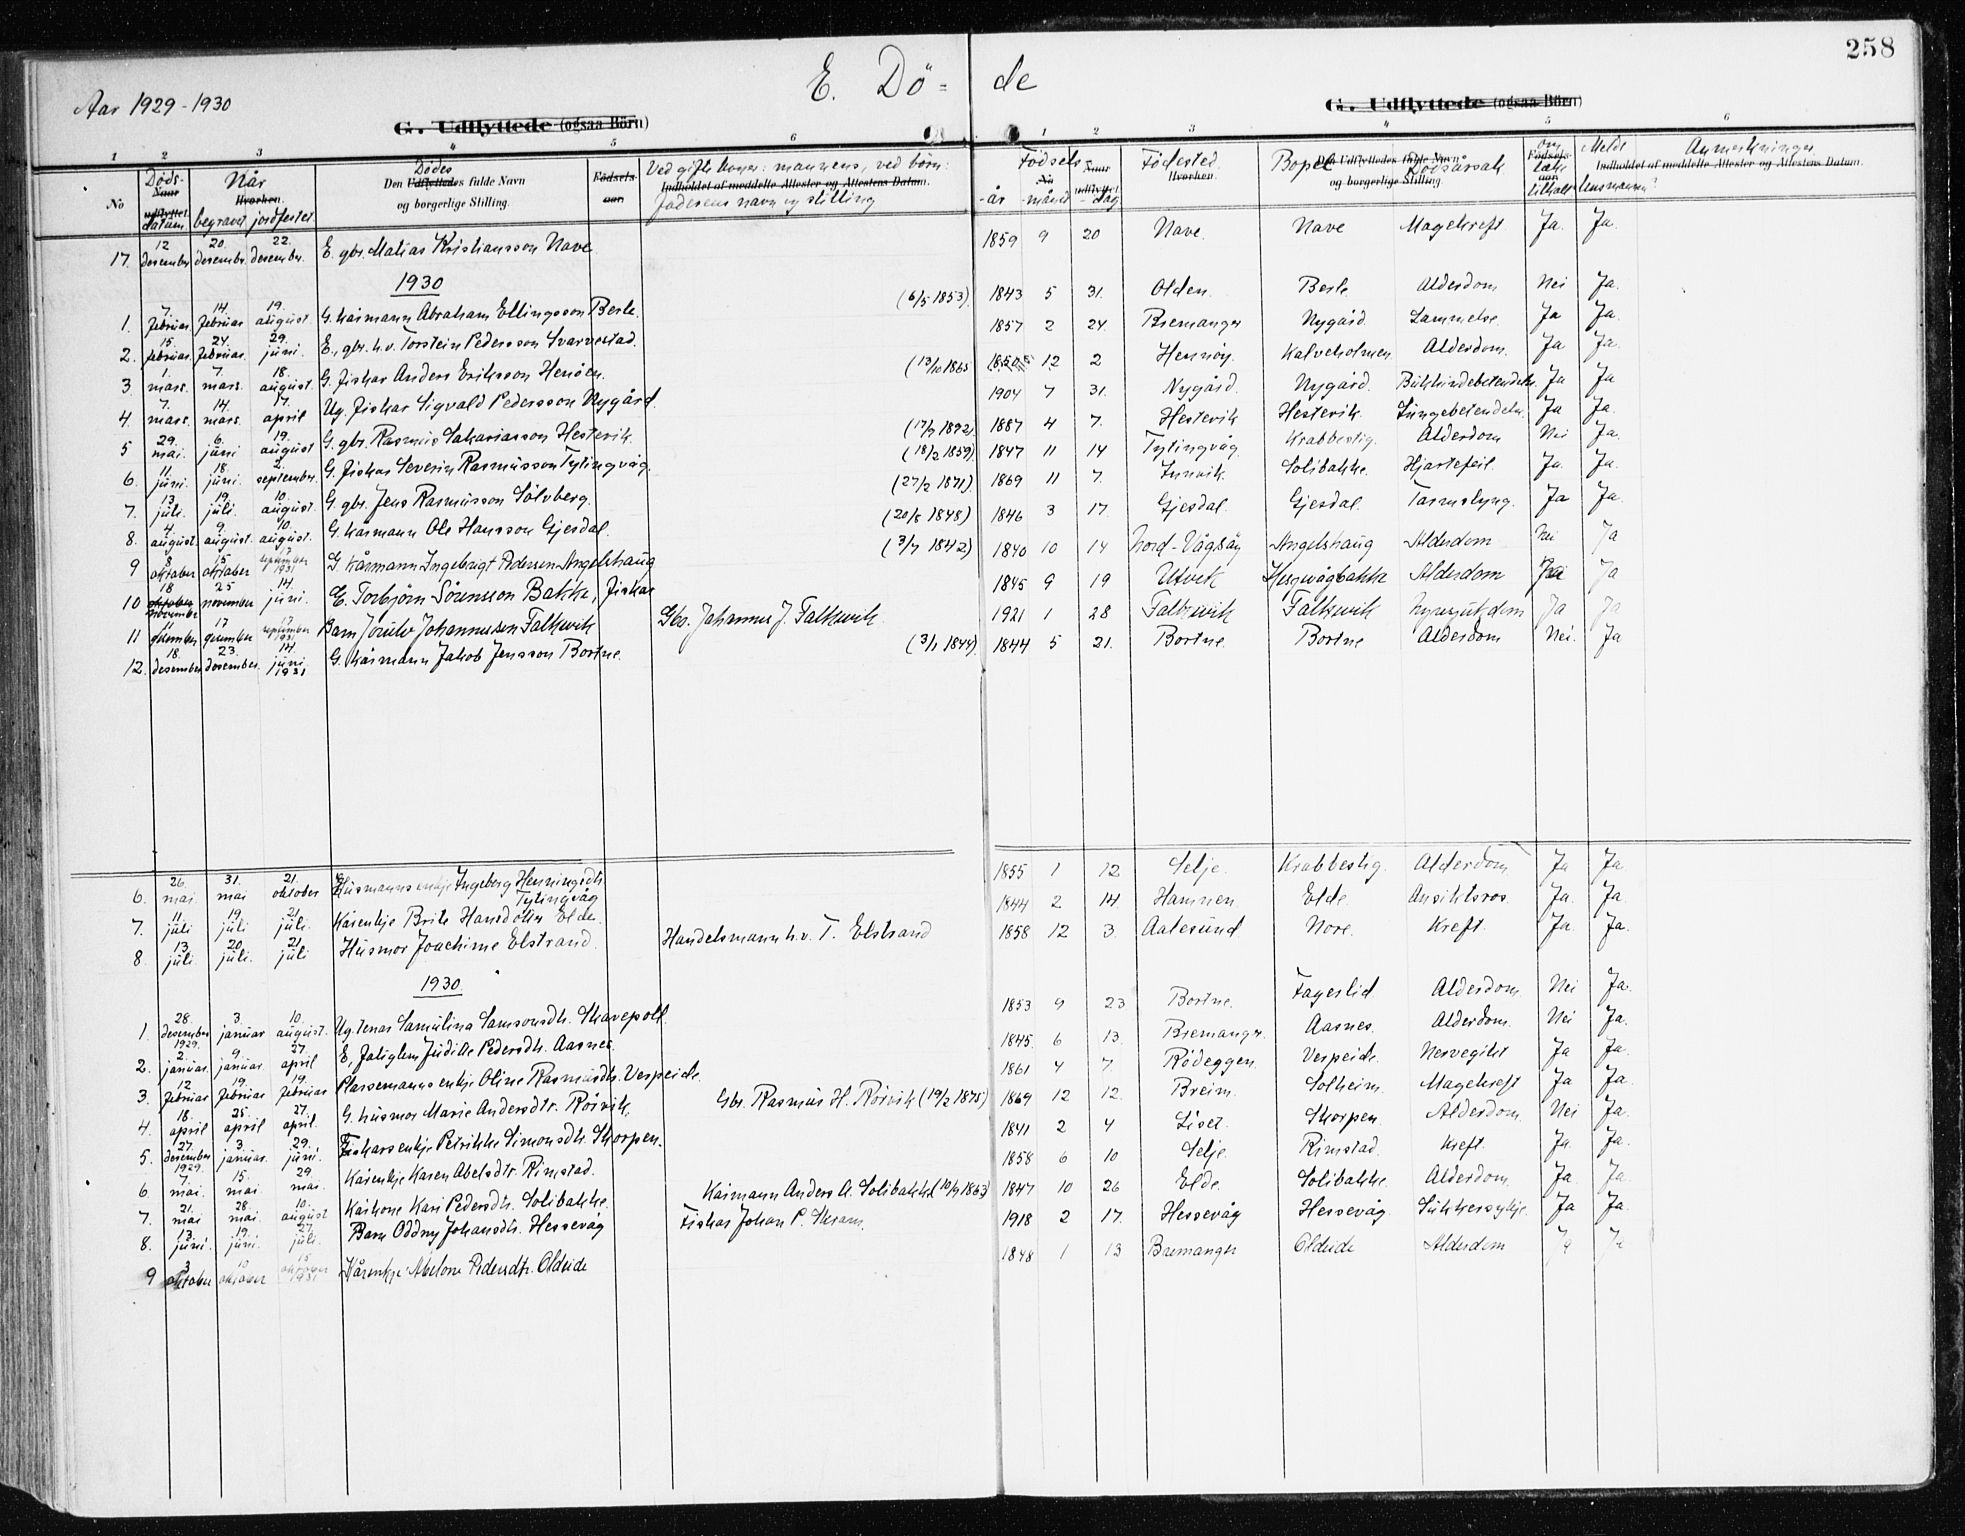 258
Aar 1929-1930
E. Dö- de
G. Udflyttede (ogsaa Börn)
G. Udflyttede (ogsaa Börn)
1 2 3 4 5 6 1 2 3 4 5 6
No
Döds- Naar udflyttet. datum
Når Hvorhen. begravet jordfestet
Dödes Den Udflyttedes fulde Navn og borgerlige Stilling.
Födsels-aar.
Ved gifte koner: mannens, ved börn: Indholdet af meddelte Attester og Attestens Datum. faderens navn og stilling
Födsels No Naar udflyttet - år - måned - dag
Födested. Hvorhen.
Bopel Den Udflyttedes fulde Navn og borgerlige Stilling. Dödsårsak
om Födsels-aar. læke tilkalt
Melde lensmannen? Indholdet af meddelte Attester og Attestens Datum.
Anmerkninger
17. 12 desember 20. desembr. 22. desember. E. gbr. Matias Kristiansson Nave 1859 9 20 Nave. Nave Magekreft Ja. Ja.
1930
1. 7. februar. 14. februar 19. august. G. kårmann Abraham Ellingsson Berle. (6/5 1853). 1843 5 31. Olden. Berle. Alderdom Nei Ja.
2. 15. februar. 24. februar. 29. juni. E., gbr. h.v. Torstein Pedersson Svarvestad. 1857 2 24. Bremanger Nygård. Lammelse. Ja Ja.
3 1. mars. 7. mars. 18. august. G. fisker Anders Eriksson Henöen. (13/10 1865 12 2 Hennöy. Kalveholmen Alderdom. Ja Ja.
4 7. mars. 14. mars. 17. april Ug. fisker Sigvald Pedersson Nygård. 1904 7 31. Nygård. Nygård. Ja Ja
5 29. mai. 6. juni 19. august G. gbr. Rasmus Sakariasson Hestevik. (17/7 1892). 1887 4 7. Hestevik Hestevik. Lungebetendelse. Ja Ja.
6. 11. juni. 18. juni. 2. september. G. fisker Severin Rasmusson Tytingvåg. (18/2 1859). 1847 11 14 Tytingvåg. Krabbestig. Alderdom Nei Ja.
7. 13. juli. 19. juli. 10. august G. gbr. Jens Rasmusson Sölvberg. (27/2 1871). 1869 11 7. Innvik. Solibakke. Hjartefeil. Ja. Ja.
8. 4 august. 9. august. 10. august. G. kårmann Ole Hansson Gjesdal. (20/8 1848) 1846 3 17. Gjesdal. Gjesdal. Tarmslyng. Ja Ja.
9 8 oktober 15 oktober 17 september 1931 G. kårmann Ingebrigt Pedersen Angelshaug (3/7 1842) 1840 10 14 Nord-Vågsöy Angelshaug Alderdom Nei Ja
10 18 oktober november 25 november 14. juni. E. Torbjörn Sörensson Bakke, fisker 1845 9 19 Utvik Hessevågbakke Alderdom Ja
11 11 desember 17 desember 17 september 1931 Barn Jorulv Johannessen Falkevik Gbr. Johannes J. Falkevik. 1921 1 28 Falkevik Falkevik Nyresykdom Ja Ja
12. 18. desember 23. desember. 14. juni. 1931 G. kårmann Jakob Jensson Bortne. (3/1 1844). 1844 5 21. Bortne. Bortne Alderdom Nei. Ja
6. 26. mai. 31. mai 21. oktober Husmannsenkje Ingeborg Henningsdtr. Tytingvåg 1855 1 12 Selje. Krabbestig. Alderdom Ja Ja.
7. 11 juli 19. juli 21. juli. Kårenkje Brite Hansdotter Elde. 1844 2 14 Hamnen. Elde. Ansiktsros. Ja. Ja.
8. 13. juli 20. juli. 21. juli Husmor Joachime Elstrand. Handelsmann h.v. T. Elstrand 1858 12 3. Aalesund Nore. Kreft. Ja. Ja.
1930
1. 28. desember 1929. 3. januar 10. august. Ug. tenar Samulina Samsonsdtr. Skavepoll. 1853 9 23 Bortne. Fageslid. Alderdom. Nei Ja.
2. 2. januar. 9. januar. 27. april E, fatiglem Judite Pedersdtr. Aasnes. 1845. 6 13. Bremanger. Aasnes. Alderdom. Nei Ja.
3. 12. februar 19. februar 19. februar Plassemannsenkje Oline Rasmusdtr. Verpeide. 1861 4 7. Rödeggen. Verpeide. Ja Ja.
4. 18. april 25. april 27. april. G. husmor Marie Andersdtr. Rörvik. Gbr. Rasmus H. Rörvik (19/2 1875) 1869 12 12. Breim. Solheim. Magekreft Ja Ja.
5. 27. desember 1929. 3. januar. 29. juni. Fiskarsenkje Petrikke Simonsdtr. Skorpen. 1841 2 4 Liset. Skorpen. Alderdom. Nei Ja.
6 7. mai. 15. mai 29. mai. Kårenkje Karen Abelsdtr. Rimstad. 1858 6 10 Selje. Rimstad. Kreft. Ja Ja.
7. 21. mai 28. mai. 10. august Kårkone Kari Pedersdtr. Solibakke. Kårmann Anders A. Solibakke (10/9 1863) 1847 10 26 Elde. Solibakke. Alderdom. Ja Ja.
8. 13. juni. 19. juni. 27. juli. Barn Oddny Johansdtr. Hessevåg Fisker Johan P. Skram. 1918 2 17. Hessevåg Hessevåg. Sukkersykje. Ja Ja.
9 3 oktober 10 oktober 15 oktober 1931 Kårenkje Abelone Pedersdtr. Oldeide 1848 1 13 Bremanger Oldeide Alderdom Ja Ja